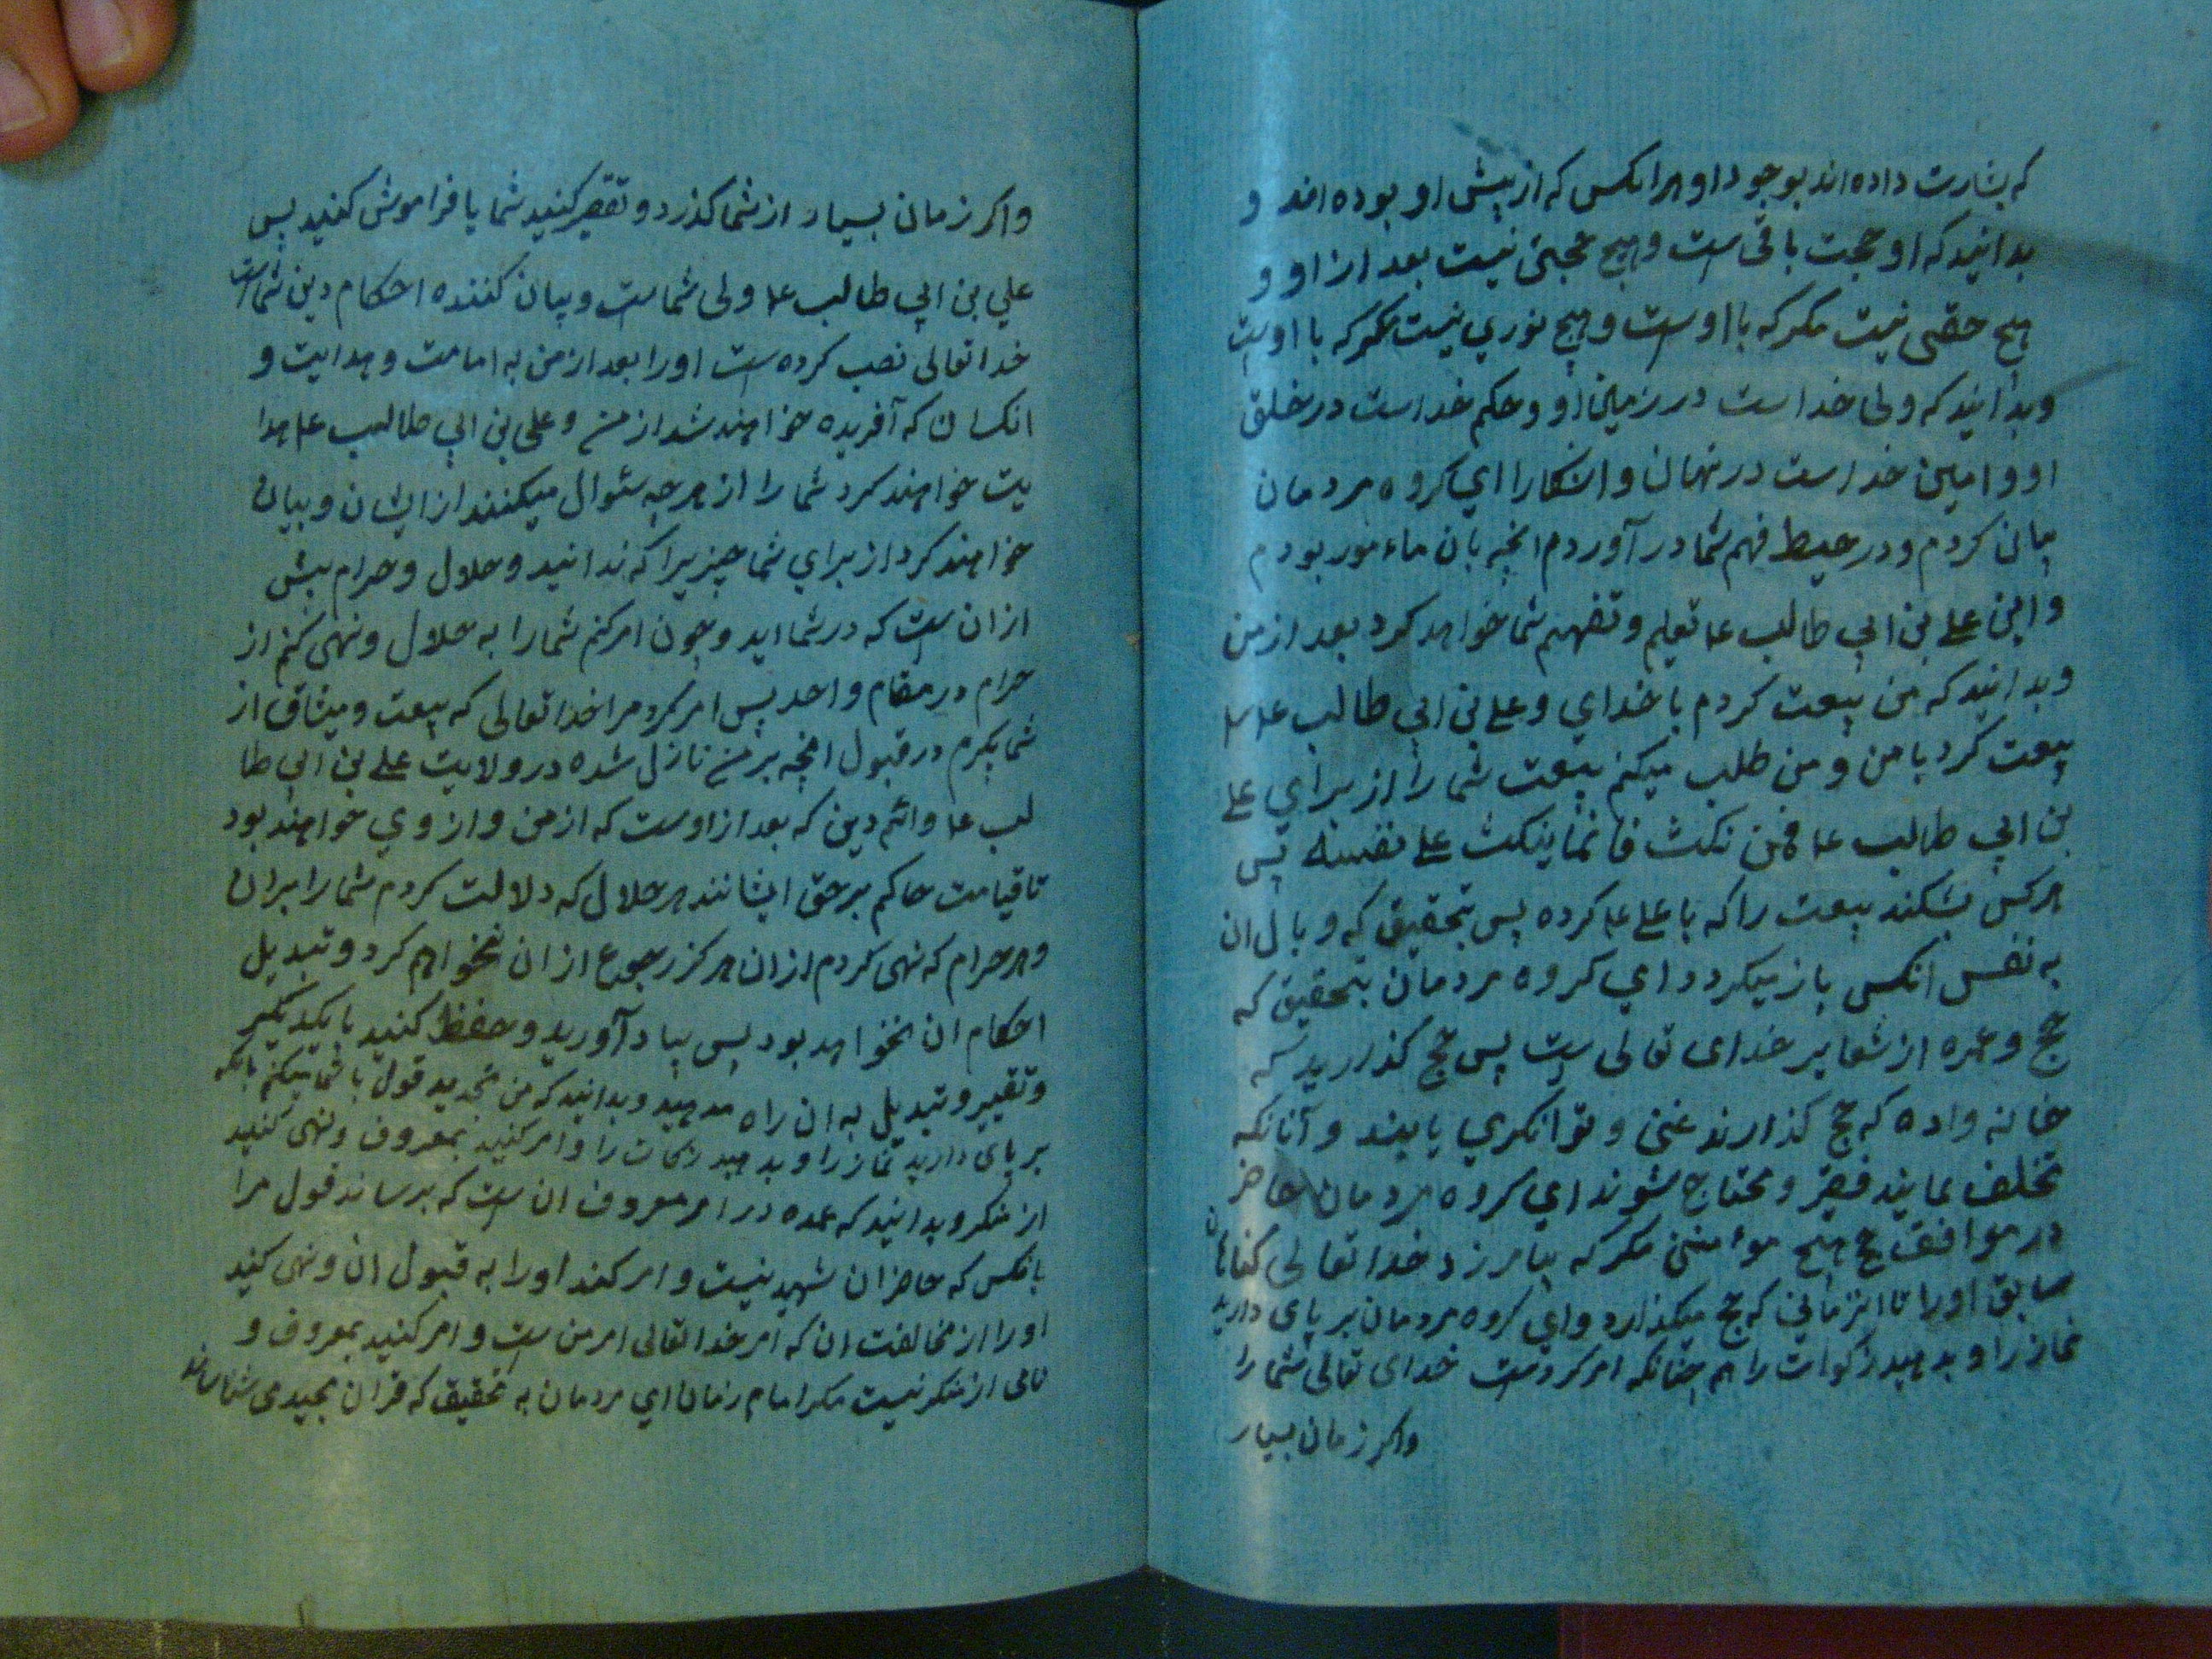 که بشارت داده اند بوجود او هرانکس که از پیش او بوده اند و
بدانید که او حجت باقی ست و هیچ حجتی نیست بعد از او و
هیچ حقی نیست مکر که با اوست و هیچ نوري نیست مکر که با اوست
وبدانید که ولی خداست در زمین او وحکم خداست در خلق
او و امین خداست در نهان و اشکارا اي کروه مردمان
بیان کردم و در حیط فهم شما در آوردم انچه بان ماءمور بودم
و این علی بن ابي طالب عا تعلیم و تفهیم شما خواهد کرد بعد از من
وبدانید که من بیعت کردم با خداي و علی بن ابي طالب علیه
بیعت کرد با من و من طلب میکنم بیعت شما را از براي علی
بن ابي طالب عا فمن نکث فانما ینکث علی نفسه پس
هرکس بشکند بیعت را که با علی عا کرده پس بتحقیق که وبال ان
به نفس انکس باز میکردد اي کروه مردمان بتحقیق که
حج و عمره از شعایر خدای تعالی ست پس حج کذارید که
خانه واده که حج کذارند غنی و توانکري یابند و آنانکه
تخلف نمایند فقیر و محتاج شوند اي کروه مردمان حاضر
در مواقف حج هیچ موءمنی مکر که بیامرزد خداتعالی کناهان
سابق او را تا انزماني که حج میکذارد واي کروه مردمان بر پای دارید
نماز را و بدهید زکوات را هم چنانکه امر کردست خدای تعالی شما را
واکر زمان بسیار
واکر زمان بسیار از شما کذرد و تقصیر کنید شما یا فراموش کنید پس
علي بن ابي طالب عا ولی شماست و بیان کننده احکام دین شماست
خداتعالی نصب کرده ست او را بعد از من به امامت و هدایت و
انکسان که آفریده خواهند شد از من و علی بن ابي طالب عا هدا
یت خواهند کرد شما را از هرچه سئوال میکنند از ایشان و بیان
خواهند کرد از براي شما چیزیرا که ندانید و حلال و حرام بیش
از ان ست که در شما اید و چون امر کنم شما را به حلال ونهی کنم از
حرام در مقام واحد پس امر کرد مرا خداتعالی که بیعت و میثاق از
شما بکیرم در قبول انچه بر من نازل شده در ولایت علی بن ابي طا
لب عا و ائم دین که بعد از اوست که از من و از وي خواهند بود
تا قیامت حاکم بر حق ایشانند هر حلال که دلالت کردم شما را بران
و هر حرام که نهی کردم از ان هرکز رجوع از ان نخواهم کرد و تبدیل
احکام ان نخواهد بود پس بیاد آورید و حفظ کنید با یکدیکر
وتغییر و تبدیل به ان راه مدهید وبدانید که من تجدید قول با شما میکنم بانکه
بر پای دارید نماز را و بدهید زکات را و امر کنید بمعروف ونهی کنید
از منکر وبدانید که عمده در امر معروف ان ست که برساند قول مرا
بانکس که حاضر ان شهید نیست و امر کند او را به قبول ان ونهی کنید
او را از مخالفت ان که امر خداتعالی امر من ست و امر کنید بمعروف و
ناهی از منکر نیست مکر امام زمان اي مردمان به تحقیق که قران مجید می شناساند